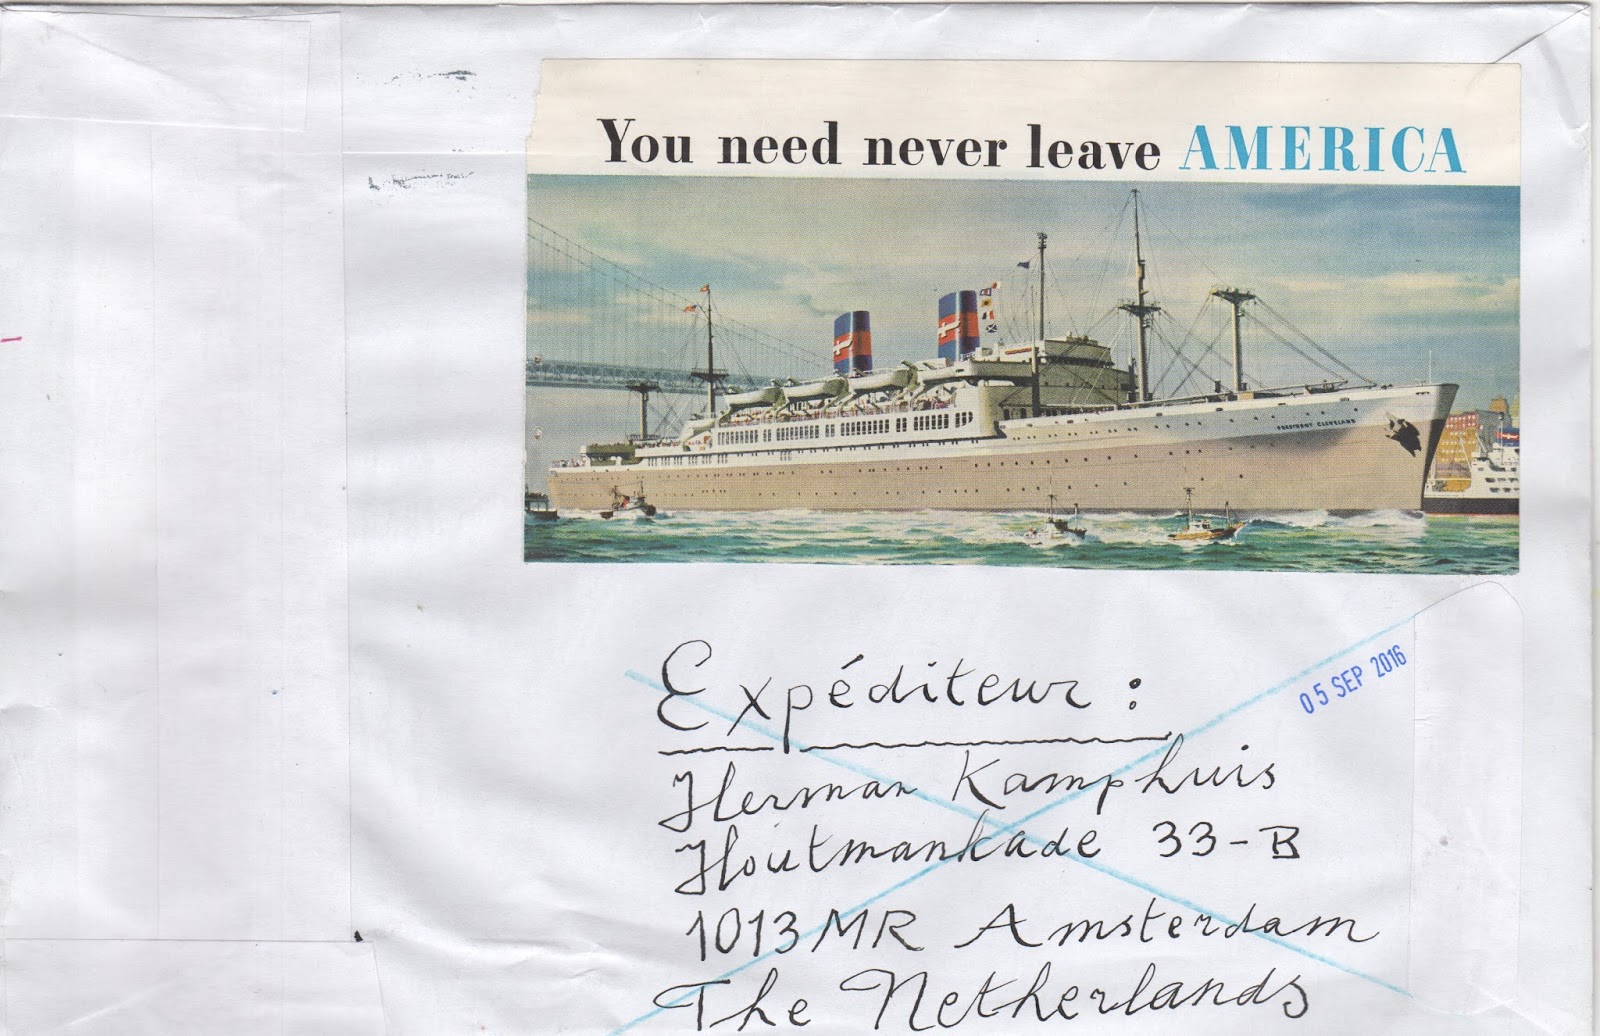 You need never leave AMERICA
PRESIDENT CLEVELAND
05 SEP 2016
Expéditeur :
Herman Kamphuis
Houtmankade 33-B
1013MR Amsterdam
The Netherlands